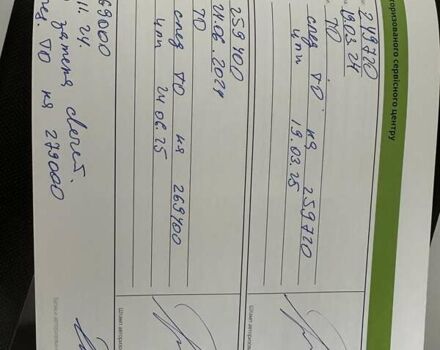 торизованого сервісного центру
249720
19.03.24
ТО
след ТО на 259720
или 19.03.25
Штамп авторизов
259400
24.06.2024
ТО
след ТО на 269400
или 24.06.25
Штамп авторизо
69000
11. 24.
замена свечей.
ТО на 279000